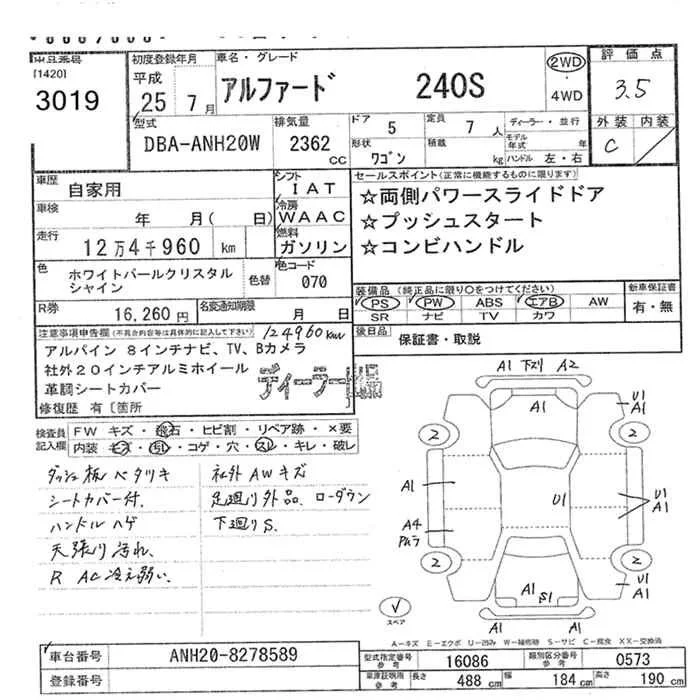 出品番号 [1420] 3019
初度登録年月 平成 25年 7月
車名・グレード アルファード 240S
2WD ・ 4WD
評価点 3.5
外装 C 内装
型式 DBA-ANH20W
排気量 2362 CC
ドア 5 定員 7 人
形状 ワゴン 積載 kg
ディーラー・並行
モデル年式 年
ハンドル 左・右
車歴 自家用
シフト IAT
車検 年 月( 日)
冷房 WAAC
走行 12万4千960 km
燃料 ガソリン
色 ホワイトパールクリスタルシャイン 色替
色コード 070
R券 16,260円
名変通知期限 月 日
セールスポイント(正常に機能するものに限ります)
☆両側パワースライドドア
☆プッシュスタート
☆コンビハンドル
装備品 (純正品に限り○をつけてください)
PS PW ABS エアB AW
SR ナビ TV カワ
新車保証書 有・無
後日品 保証書・取説
注意事項申告欄(不具合内容等は具体的に記入して下さい) 124960km
アルパイン 8インチナビ、TV、Bカメラ
社外20インチアルミホイール
革調シートカバー
修復歴 有〔箇所
ディーラー
検査員記入欄
FW キズ・飛石・ヒビ割・リペア跡・×要
内装 キズ・汚レ・コゲ・穴・スレ・キレ・破レ
ダッシュ板ベタツキ
シートカバー付.
ハンドルハゲ
天張り汚れ.
R AC冷え弱い.
社外AWキズ
足廻り外品、ローダウン
下廻りS.
A1 下スリ A2
A1
U1
A1
2
2
A1
U1
U1
A1
A4
2
2
A1 S1
U1
A1
A1 A1
スペア
A-キズ E-エクボ U-凹み W-補修跡 S-サビ C-腐食 XX-交換済
車台番号 ANH20-8278589
登録番号
型式指定番号 参考 16086
類別区分番号 参考 0573
車庫証明用 参考 長さ 488 cm 幅 184 cm 高さ 190 cm